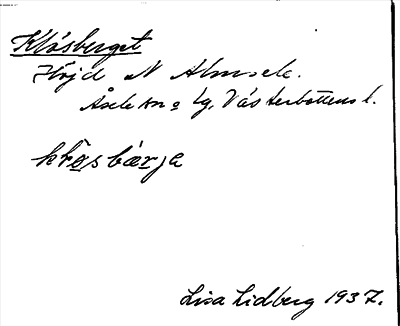 Klösberget
Höjd N Almsele.
Åsele sn o lg, Västerbottens l.
klösbærja
Lisa Lidberg 1937.